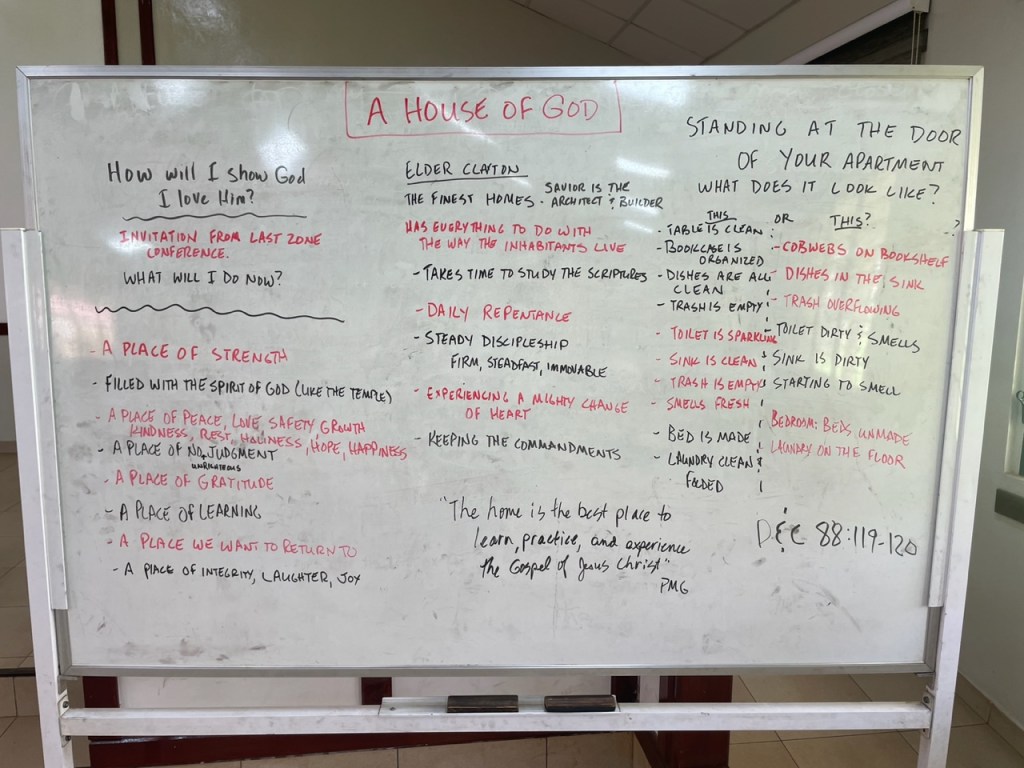 A HOUSE OF GOD
HOW WILL I SHOW GOD
I LOVE HIM?
INVITATION FROM LAST ZONE
CONFERENCE.
WHAT WILL I DO NOW?
- A PLACE OF STRENGTH
- FILLED WITH THE SPIRIT OF GOD (LIKE THE TEMPLE)
- A PLACE OF PEACE, LOVE, SAFETY GROWTH
KINDNESS, REST, HOLINESS, HOPE, HAPPINESS
- A PLACE OF NO JUDGMENT
UNRIGHTEOUS
- A PLACE OF GRATITUDE
- A PLACE OF LEARNING
- A PLACE WE WANT TO RETURN TO
- A PLACE OF INTEGRITY, LAUGHTER, JOY
ELDER CLAYTON
THE FINEST HOMES - SAVIOR IS THE
ARCHITECT & BUILDER
HAS EVERYTHING TO DO WITH
THE WAY THE INHABITANTS LIVE
- TAKES TIME TO STUDY THE SCRIPTURES
- DAILY REPENTANCE
- STEADY DISCIPLESHIP
FIRM, STEADFAST, IMMOVABLE
- EXPERIENCING A MIGHTY CHANGE
OF HEART
- KEEPING THE COMMANDMENTS
"The home is the best place to
learn, practice, and experience
the Gospel of Jesus Christ"
PMG
STANDING AT THE DOOR
OF YOUR APARTMENT
WHAT DOES IT LOOK LIKE?
THIS OR THIS?
- TABLE IS CLEAN
- BOOKCASE IS
ORGANIZED
- DISHES ARE ALL
CLEAN
- TRASH IS EMPTY
- TOILET IS SPARKLING
- SINK IS CLEAN
- TRASH IS EMPTY
- SMELLS FRESH
- BED IS MADE
- LAUNDRY CLEAN &
FOLDED
- COBWEBS ON BOOKSHELF
- DISHES IN THE SINK
- TRASH OVERFLOWING
- TOILET DIRTY & SMELLS
SINK IS DIRTY
STARTING TO SMELL
BEDROOM: BEDS UNMADE
LAUNDRY ON THE FLOOR
D&C 88:119-120